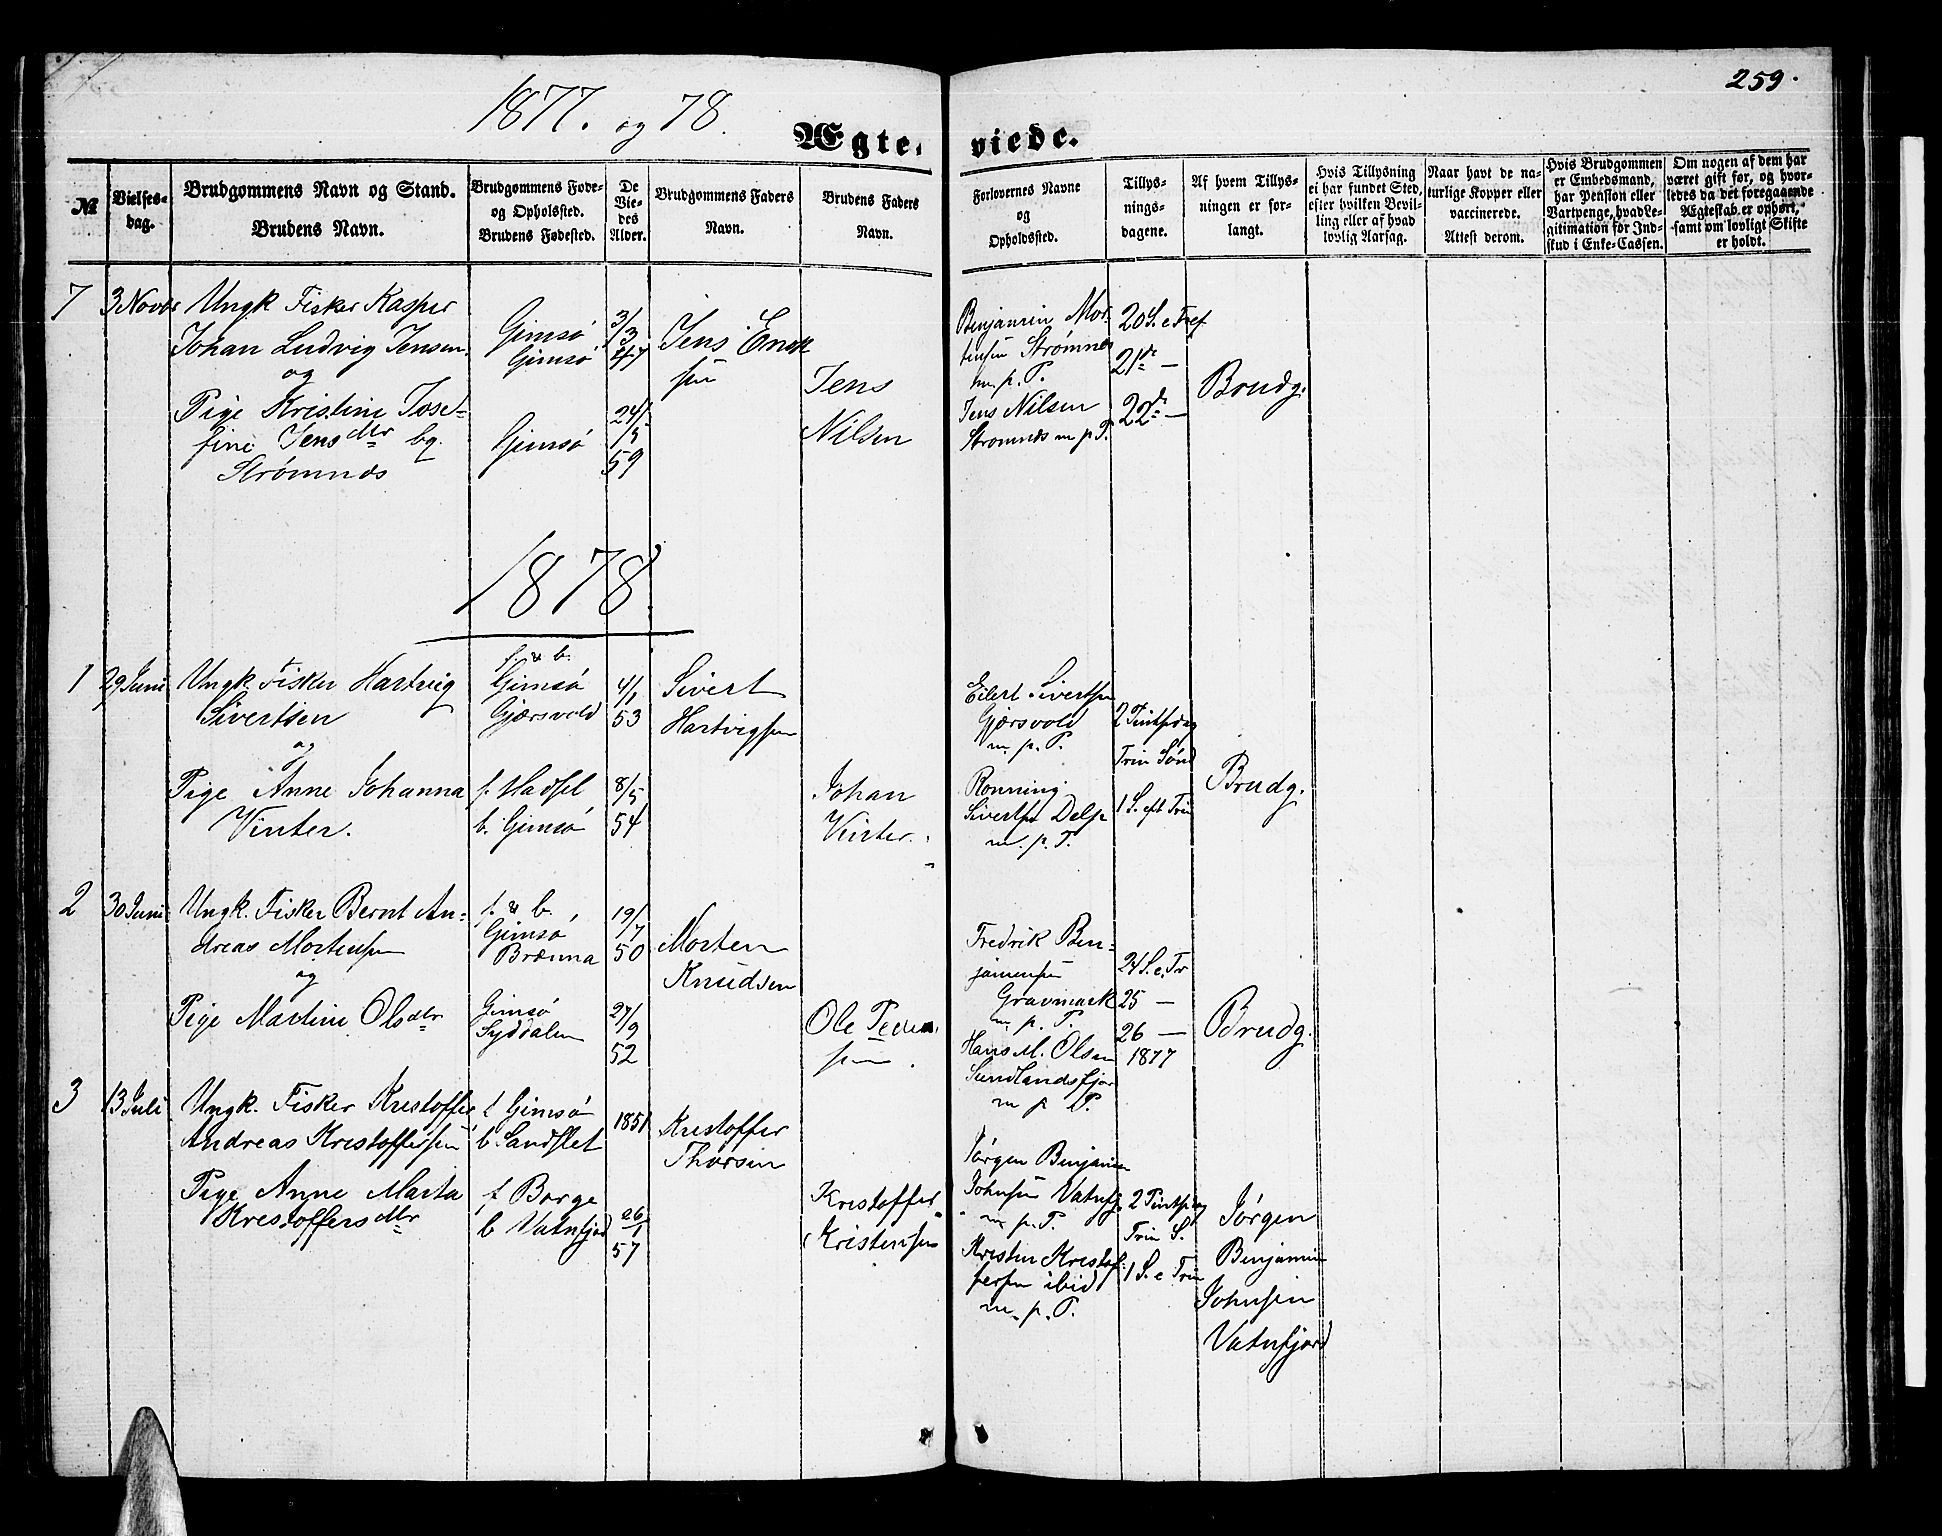 259.
1877. og 78.
Ægte- viede.
№
Vielses-
dag.
Brudgommens Navn og Stand.
Brudens Navn.
Brudgommens Føde-
og Opholdsted.
Brudens Fødested.
De
Vie-
des
Alder.
Brudgommens Faders
Navn.
Brudens Faders
Navn.
Forlovernes Navne
og
Opholdssted.
Tillys-
nings-
dagene.
Af hvem Tillys-
ningen er for-
langt.
Hvis Tillysning
ei har fundet Sted,
efter hvilken Bevil-
ling eller af hvad
lovlig Aarsag.
Naar havt de na-
turlige Kopper eller
vaccinerede.
Attest derom.
Hvis Brudgommen
er Embedsmand,
har Pension eller
Vartpenge, hvad Le-
gitimation for Ind-
skud i Enke-Cassen.
Om nogen af dem har
været gift før, og hvor-
ledes da det foregaaende
Ægteskab er ophørt,
samt om lovligt Skifte
er holdt.
7
3 Novbr
Ungk Fisker Kasper
Johan Ludvig Jensen
og
Pige Kristine Jose-
fine Jensdtr bg.
Strømnes
Gimsø
Gimsø
Gimsø
3/3
47
24/
/5
59
Jens
sen
Jens
Nilsen
Benjamin Mor-
tensen Strømnes
m. p. P.
Jens Nilsen
Strømnes m p P.
20 S. e Tref
21de —
22de —
Brudg.
1878.
1
29 Juni
Ungk. Fisker Hartvig
Sivertsen
og
Pige Anne Johanna
Vinter.
f. & b.
Gimsø
Gjærsvold
f. Hadsel
b. Gimsø
4/1
53
8/5
54
Sivert
Hartvigsen
Johan
Vinter.
Eilert Sivertsen
Gjærsvold
m. p. P.
Rønning
Sivertsen Delp
m. p. P.
2 Pintsedag
Trin Sønd
1 S. eft Trin
Brudg.
2
30 Juni
Ungk. Fisker Bernt An-
dreas Mortensen
og
Pige Martine Olsdtr
f. & b.
Gimsø
Brenna
Gimsø
Syddalen
19/7
50
27/9
52
Morten
Knudsen
Ole Peder
sen
Fredrik Ben-
jaminsen
Gravmark
m. p. P.
Hans M. Olsen
Sundlandsfjor
m p P.
24 S. e. Tr
25 —
26 —
1877
Brudg.
3
13 Juli
Ungk. Fisker Kristoffer
Andreas Kristoffersen
Pige Anne Marta
Kristoffersdtr
f Gimsø
b. Sandslet
f Borge
b Vatnfjord
1851
26/1
57
Kristoffer
Thorsen
Kristoffer
Kristensen
Jørgen Benjamin
Johnsen Vatnfj.
m. p. P.
Kristen Kristof-
fersen ibid
m. p. P.
2 Pintsedag
Trin S.
1 S. e Trin
Jørgen
Benjamin
Johnsen
Vatnfjord